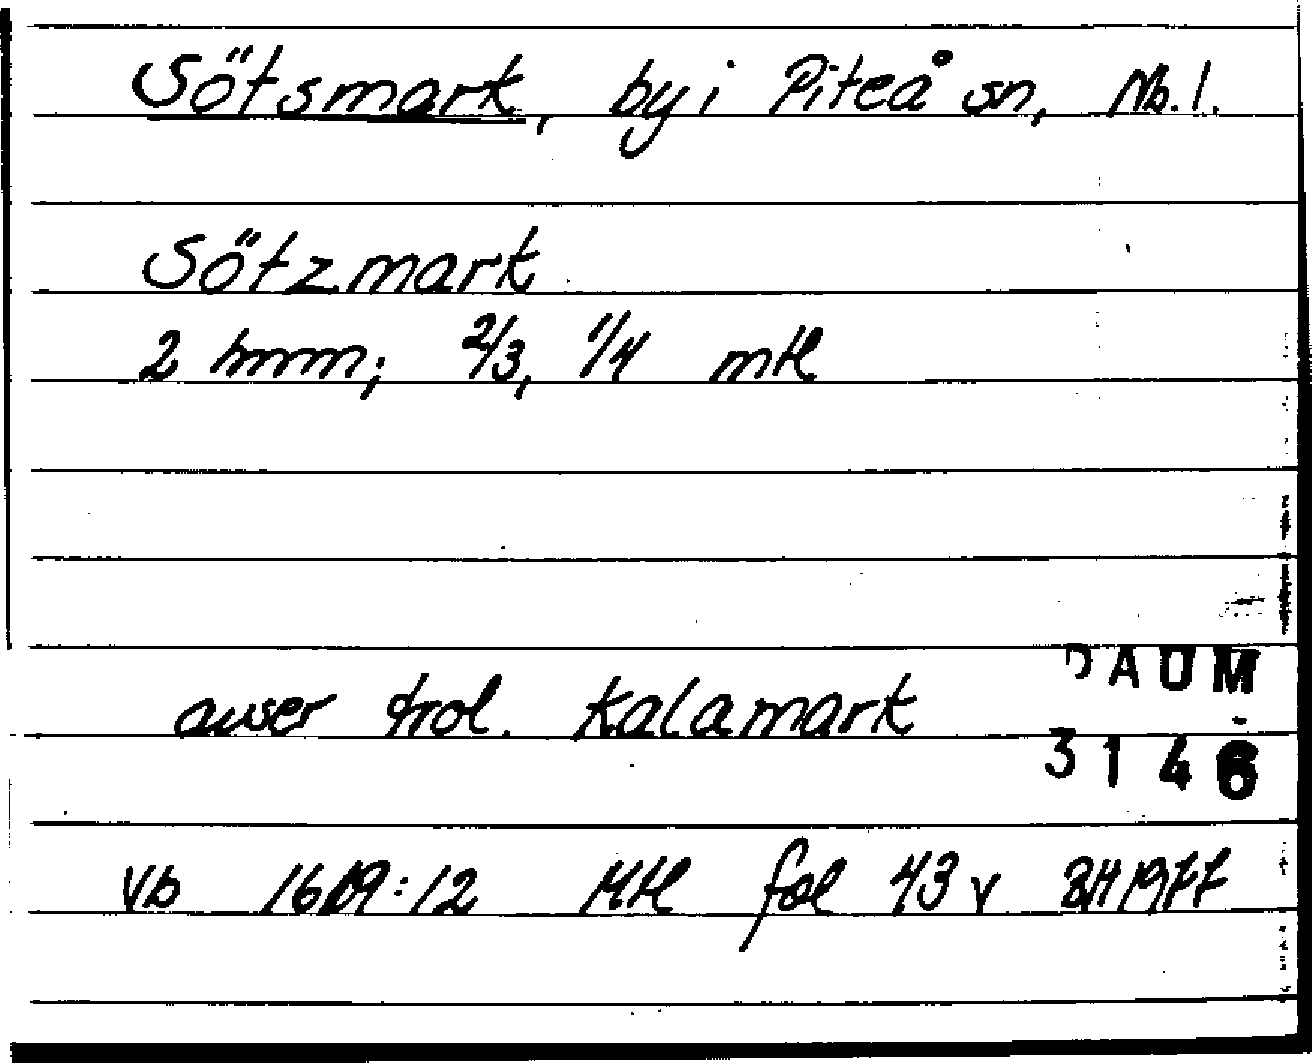 Sötsmark, by i Piteå sn, Nb. l.
Sötzmark
2 hmm; 2/3, 1/4 mtl
DAUM
avser trol. Kalamark
3146
Vb 1609:12 Mtl fol 43 v BH 1977